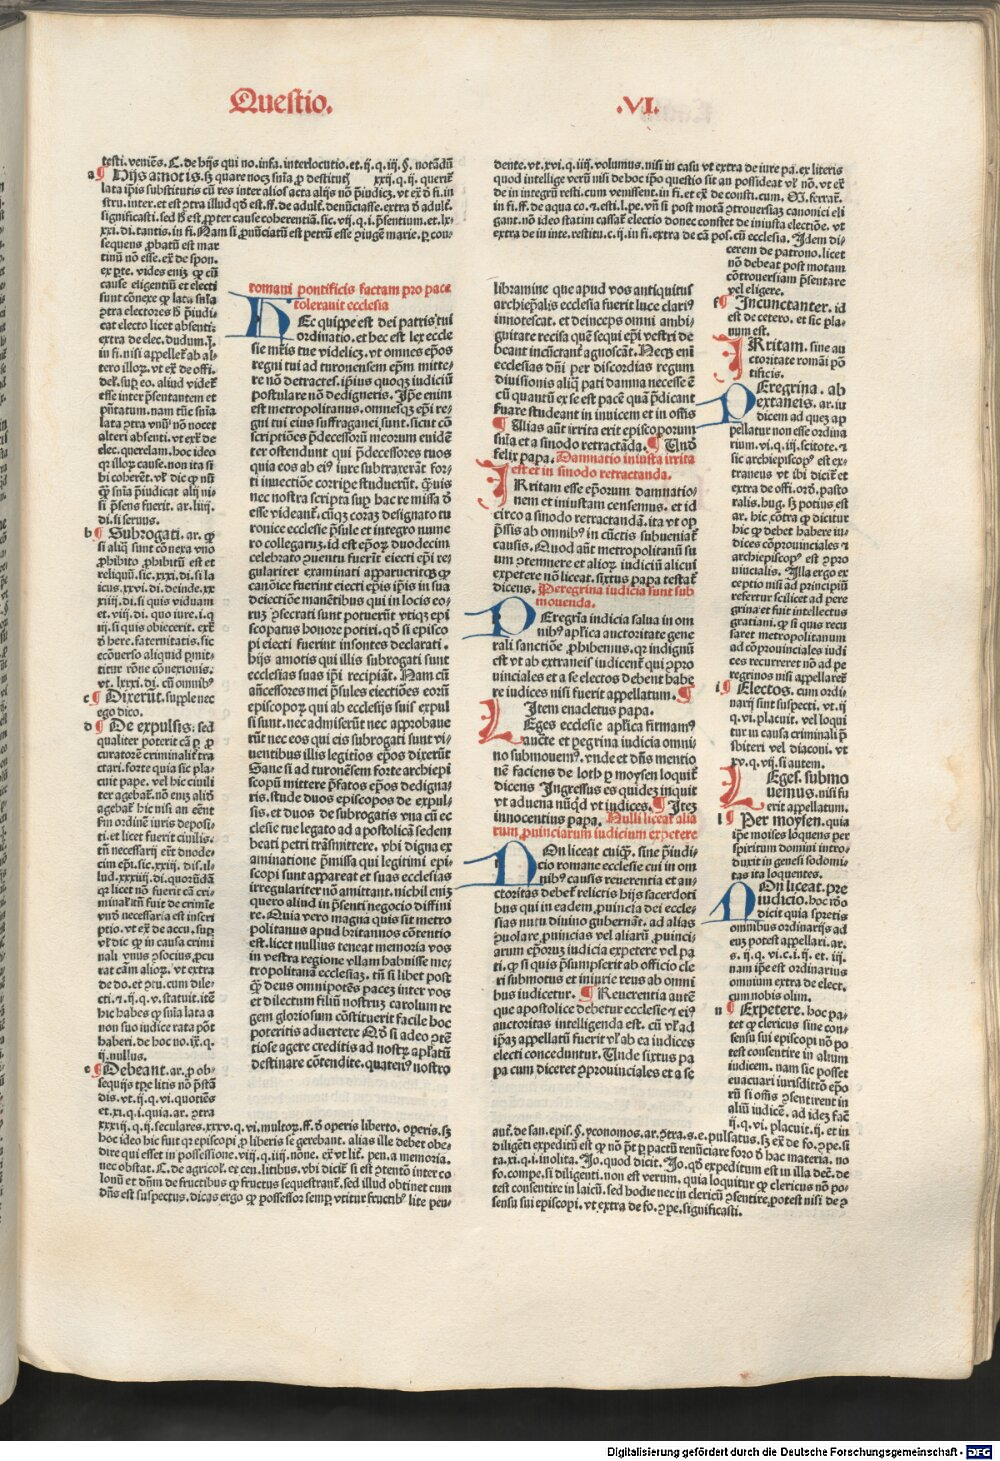 Questio. .VI.
testi. veniēs. C. de hijs qui no. infa. interlocutio. et. ij. q. iij. §. notādū
Hijs amotis.
significasti. sed
xxi. di. tantis. in fi. Nam si ꝓnūciatū est petrū esse ꝯiugē marie. ꝑ con-
sequens ꝓbatū est mar
tinū nō esse. eē de spon.
cause eligentiū et electi
cat electo licet absenti.
extra de elec. dudum.
in fi. nisi appelleť ab al-
esse inter p̄sentantem et
alteri absenti. vt exť de
elec. querelam. hoc ideo
di. si seruus.
b Subrogati. ar. ꝙ
si aliq̄ sunt cōnexa vno
ꝓhibito ꝓhibitū est et
reliquū. sic. xxxi. di. si la
icus. xxvi. di. deinde. xx
xiiij. di. si quis viduam
et. viij. di. quo iure. i. q
iij. si quis obiecerit. exť
ecōuerso aliquid ꝑmit-
titur rōne cōnexionis.
vt. lxxi. di. cū omnibꝰ
c Dixerūt. supple nec
ego dico.
d De expulsis: sed
qualiter poterit cā ꝑ ꝓ
curatorē criminalit̄ tra
ctari. forte quia sic pla-
cuit pape. vel hic ciuili
ti. et licet fuerit ciuilis.
haberi. de hoc no. ix. q.
ij. nullus.
e Debeant. ar. ꝓ ob-
sequijs tpe litis nō p̄stā
dis. vt. ij. q. vi. quotiēs
et. xi. q. i. quia. ar. ꝯtra
xxxij. q. ij. seculares. xxxv. q. vi. multoꝝ. ff. d̄ operis liberto. operis. sꝫ
hoc ideo hic fuit qꝛ episcopi ꝓ liberis se gerebant. alias ille debet obe-
dire qui esset in possessione. viij. q. iiij. none. exť vt lit̄. pen. a memoria.
nec obstat. C. de agricol. et cen. litibus. vbi dicit̄ si est ꝯtentō inter co
lonū et dn̄m de fructibus ꝙ fructus sequestrant̄. sed illud obtinet cum
dn̄s est suspectus. dicas ergo ꝙ possessor semꝑ vtitur fructibꝰ lite pen-
romani pontificis factam pro pace
tolerauit ecclesia
HEc quippe est dei patris tui
ordinatio. et hec est lex eccle
sie mr̄is tue videlicꝫ. vt omnes ep̄os
regni tui ad turonensem ep̄m mitte-
re nō detractes. ip̄ius quoqꝫ iudiciū
postulare nō dedigneris. Ip̄e enim
est metropolitanus. omnesqꝫ ep̄i re-
gni tui eius suffraganei sunt. sicut cō
scriptiōes p̄decessorū meorum euidē
ter ostendunt qui p̄decessores tuos
quia eos ab eiꝰ iure subtraxerāt for-
ti inuectiōe corripe studuerūt. ꝗuis
nec nostra scripta suꝑ hac re missa d̄
esse videant̄. cūqꝫ coraꝫ designato tu
ronice ecclesie p̄sule et integro nume
ro collegaruꝫ. id est ep̄oꝝ duodecim
celebrato ꝯuentu fuerīt eiecti ep̄i re-
gulariter examinati apparueritqꝫ ꝙ
canōice fuerint eiecti ep̄is ip̄is in sua
deiectiōe manētibus qui in locis eo-
ruꝫ ꝯsecrati sunt potuerūt vtiqꝫ epi
scopatus honore potiri. ꝙd si episco
pi eiecti fuerint insontes declarati.
hijs amotis qui illis subrogati sunt
ecclesias suas ip̄i recipiāt. Nam cū
ancessores mei p̄sules eiectiōes eorū
episcoporꝫ qui ab ecclesijs suis expul
si sunt. nec admiserūt nec approbaue
rūt nec eos qui eis subrogati sunt vi-
uentibus illis legitios ep̄os dixerūt
Sane si ad turonēsem forte archiepi
scopū mittere p̄fatos ep̄os dedigna-
ris. stude duos episcopos de expul-
sis. et duos de subrogatis vna cū ec
clesie tue legato ad apostolicā sedem
beati petri trāsmittere. vbi digna ex
aminatione p̄missa qui legitimi epi-
scopi sunt appareat et suas ecclesias
irregulariter nō amittant. nichil enīꝫ
quero aliud in p̄senti negocio diffini
re. Quia vero magna quis sit metro
politanus apud britannos cōtentio
est. licet nullius teneat memoria vos
in vestra regione vllam habuisse me-
tropolitanā ecclesiaꝫ. tū si libet post
ꝗ̄ deus omnipotēs pacēꝫ inter vos
et dilectum filiū nostruꝫ carolum re
gem gloriosum cōstituerit facile hoc
poteritis aduertere Qd̄ si adeo ꝯtē
tiose agere creditis ad nostꝝ apl̄atū
destinare cōtendite. quateniꝰ nostro
dente. vt. xvi. q. iiij. volumus. nisi in casu vt extra de iure pa. ex literis
quod intellige verū nisi de hoc ip̄o questio sit an possideat vl̓ nō. vt ex̄
de in integrū resti. cum venissent. in fi. et ex̄ de consti. cum. M. ferraī.
in fi. ff. de aqua co. ⁊ esti. l. pe. vn̄ si post motā ꝯtrouersiaꝫ canonici eli
gant. nō ideo statim cassat̄ electio donec constet de iniusta electiōe. vt
extra de in inte. restitu. c. ij. in fi. extra de cā pos. cū ecclesia. Idem di-
cerem de patrono. licet
nō debeat post motam
cōtrouersiam p̄sentare
vel eligere.
libramine que apud vos antiquitus
archiep̄alis ecclesia fuerit luce clariꝰ
innotescat. et deinceps omni ambi-
guitate recisa quē sequi ep̄i vestri de
beant incūctant̄ agnoscāt. Necqꝫ eni
ecclesias dn̄i per discordias regum
diuisionis aliq̄ pati damna necesse ē
cū quantū ex se est pacē quā p̄dicant
suare studeant in inuicem et in oms
Alias aūt irrita erit episcoporum
sn̄ia et a sinodo retractāda. Vn̄
felix papa. Damnatio iniusta irrita
est et in sinodo retractanda.
IRritam esse ep̄orum damnatio-
nem et iniustam censemus. et id
circo a sinodo retractandā. ita vt op
p̄ssis ab omnibꝰ in cūctis subueniat̄
causis. Quod aūt metropolitanū su
um ꝯtemnere et alioꝝ iudiciū alicui
expetere nō liceat. sixtus papa testat̄
dicens. Peregrina iudicia sunt sub
mouenda.
PEregrīa iudicia salua in om
nibꝰ apl̄ica auctoritate gene
rali sanctiōe ꝓhibemus. qꝛ indignū
est vt ab extraneis iudicent̄ qui ꝯpro
uinciales et a se electos debent habe
re iudices nisi fuerit appellatum.
Item enacletus papa.
LEges ecclesie apl̄ica firmamꝰ
aucte et pegrina iudicia omni
no submouemꝰ. vnde et dn̄s mentio
nē faciens de loth ꝑ moysen loquit̄
dicens Ingressus es quidēꝫ inquit
vt aduena nūqd̄ vt iudices. Iteꝫ
innocentius papa. Nulli liceat alia
rum ꝓuinciarum iudicium expetere
NOn liceat cuiqꝫ. sine p̄iudi-
cio romane ecclesie cui in om
nibꝰ causis reuerentia et au-
ctoritas debet̄ relictis hijs sacerdoti
bus qui in eadem ꝓuincia dei eccle-
sias nutu diuino gubernāt. ad alias
ꝯuolare ꝓuincias vel aliarū ꝓuinci-
arum ep̄oruꝫ iudicia expetere vel pa
ti. ꝙ si quis p̄sumpserit ab officio cle
ri submotus et iniurie reus ab omni
bus iudicetur. Reuerentia autē
que apostolice debetur ecclesie ⁊ eiꝰ
auctoritas intelligenda est. cū vl̓ ad
ip̄aꝫ appellatū fuerit vl̓ ab ea iudices
electi conceduntur. Unde sixtus pa
pa cum diceret ꝯprouinciales et a se
Incunctanter. id
est de cetero. et sic pla-
num est.
IRritam. sine au
ctoritate romāi pō
tificis.
PEregrina. ab
extraneis. ar. iu
dicem ad quez ap
pellatur non esse ordina
rium. vi. q. iij. scitote. ⁊
sic archiepiscopꝰ est ex-
traneus vt ibi dicit̄ et
extra de offi. ord. pasto
ralis. hug. sꝫ potius est
ar. hic cōtra ꝙ dicitur
hic ꝙ debet habere iu-
dices cōprouinciales ⁊
archiepiscopꝰ est ꝯpro
uincialis. Illa ergo ex
ceptio nisi ad principiū
refertur scilicet ad pere
grina et fuit intellectus
gratiani. ꝙ si quis recu
saret metropolitanum
ad cōprouinciales iudi
ces recurreret nō ad pe
regrinos nisi appellaret̄
i Electos. cum ordi-
narij sunt suspecti. vt. ij
q. vi. placuit. vel loqui
tur in causa criminali p̄
sbiteri vel diaconi. vt
xv. q. vij. si autem.
LEges. submo
uemus. nisi fu
erit appellatum.
l Per moysen. quia
ip̄e moises lōquens per
spiritum domini intro-
duxit in genesi sodomi-
tas ita loquentes.
NOn liceat. pre
iudicio. hoc iō
dicit quia spretis
omnibus ordinarijs ad
eūꝫ potest appellari. ar.
s. ij. q. vi. c. i. ij. et. iij.
nam ip̄e est ordinarius
omnium extra de elect.
cum nobis olim.
n Expetere. hoc pa-
tet ꝙ clericus sine con-
sensu sui episcopi nō po
test consentire in alium
iudicem. nam sic posset
euacuari iurisdictō ep̄o
rū si oms̄ ꝯsentirent in
aliū iudicē. ad ideꝫ facē
ij. q. vi. placuit. ij. et in
aut̄. de san. epis. §. yconomos. ar. ꝯtra. s. e. pulsatus. sꝫ ex̄ de fo. ꝯpe. si
diligēti expeditū est ꝙ nō pōt ꝑ pactū renūciare foro d̄ hac materia. no
ta. xi. q. i. inolita. Jo. quod dicit. Jo. ꝙd expeditum est in illa decē. de
fo. compe. si diligenti. non est verum. quia loquitur ꝙ clericus nō po-
test consentire in laicū. sed hodie nec in clericū ꝯsentire potest nisi de ꝯ
sensu sui episcopi. vt extra de fo. ꝯpe. significasti.
Digitalisierung gefördert durch die Deutsche Forschungsgemeinschaft - DFG